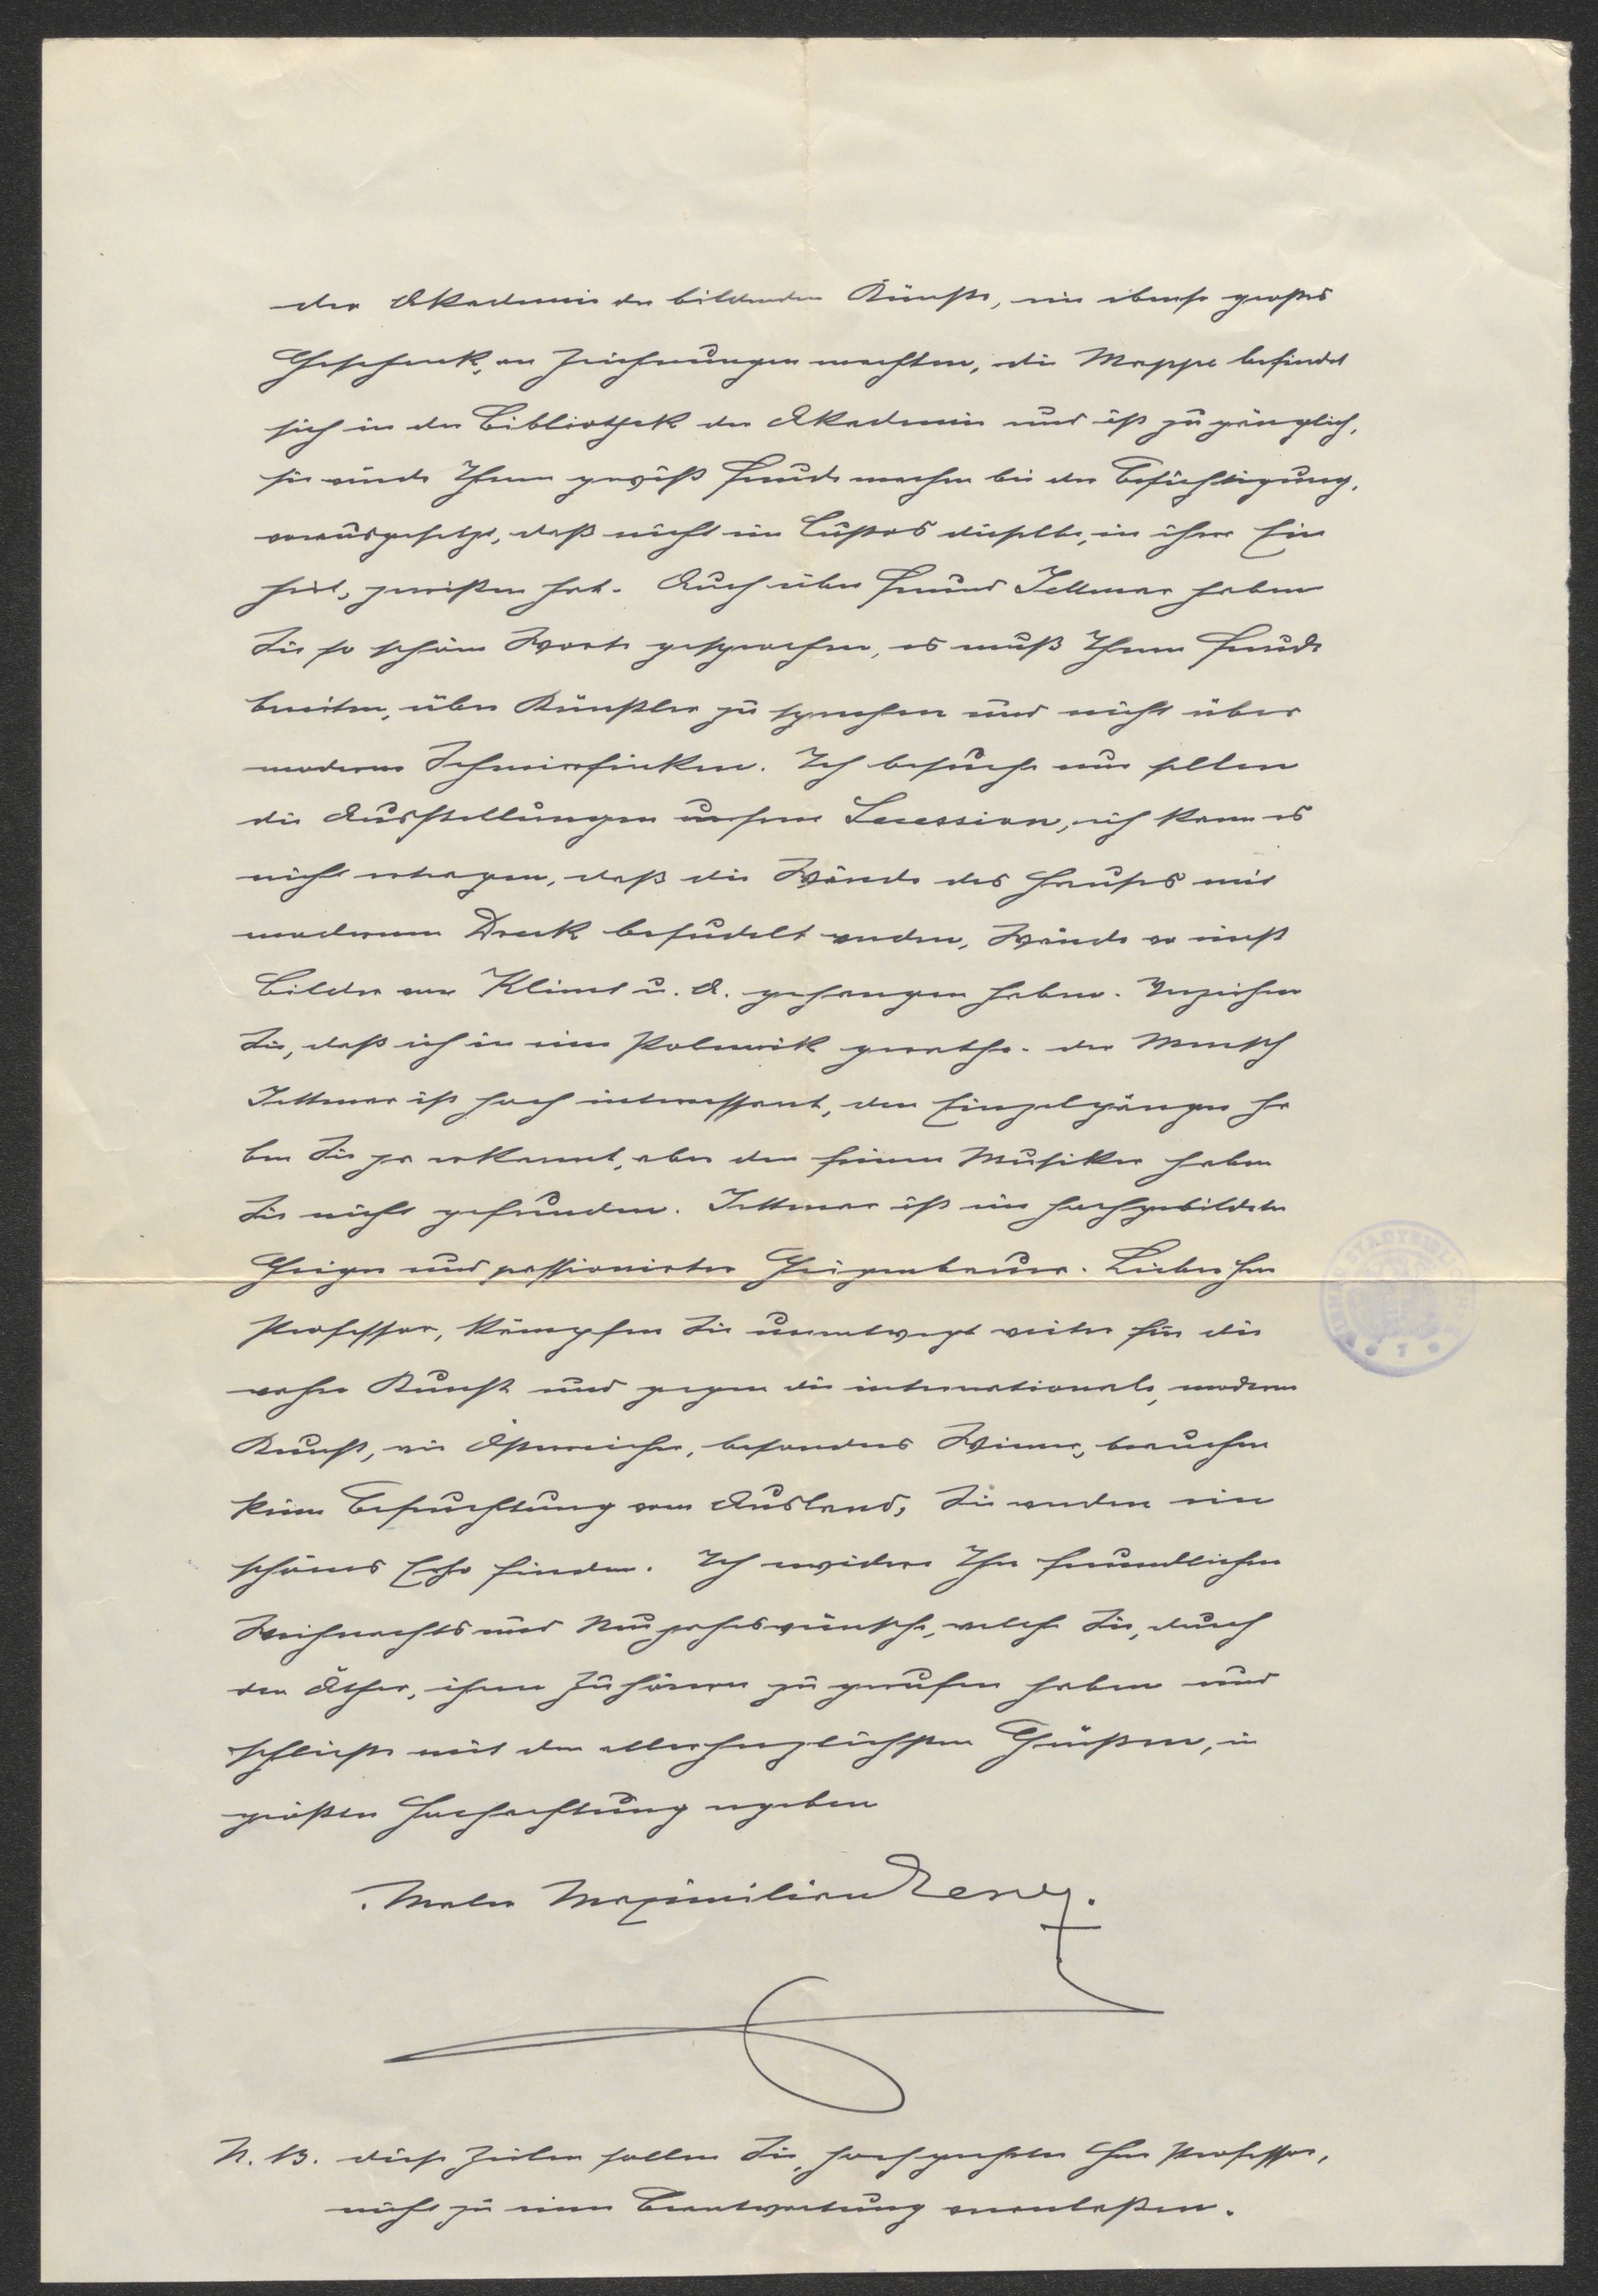 der Akademie der bildenden Künste, ein ebenso großes
Geschenk, an Zeichnungen machten, die Mappe befindet
sich in der Bibliothek der Akademie und ist zugänglich,
sie würde Ihnen gewiß Freude machen bei der Besichtigung,
vorausgesetzt, daß nicht ein Custos dieselbe, in ihrer Ein
heit, zerrißen hat. Auch über Freund Jettmar haben
Sie so schöne Worte gesprochen, es muß Ihnen Freude
bereiten, über Künstler zu sprechen und nicht über
moderne Schmierfinken. Ich besuche nur selten
die Ausstellungen unserer Secession, ich kann es
nicht ertragen, daß die Wände des Hauses mit
modernem Dreck besudelt werden, Wände wo einst
Bilder von Klimt u. A. gehangen haben. Verzeihen
Sie, daß ich in eine Polemik gerathe. der Mensch
Jettmar ist hoch interessant, den Einzelgänger ha
ben Sie ja erkannt, aber den feinen Musiker haben
Sie nicht gefunden. Jettmar ist ein hochgebildeter
Geiger und passionierter Geigenbauer. Lieber Herr
Professor, kämpfen Sie unentwegt weiter für die
wahre Kunst und gegen die internationale, moderne
Kunst, wir Österreicher, besonders Wiener, brauchen
keine Befruchtung vom Ausland, Sie werden ein
schönes Echo finden. Ich erwidere Ihre freundlichen
Weihnachts und Neujahrswünsche, welche Sie, durch
den Äther, ihren Zuhörern zugerufen haben und
schließe mit den allerherzlichsten Grüßen, in
größter Hochachtung ergeben
Maler Maximilian
N. B. diese Zeilen sollen Sie, hochgeehrter Herr Professor,
nicht zu einer Beantwortung veranlaßen.